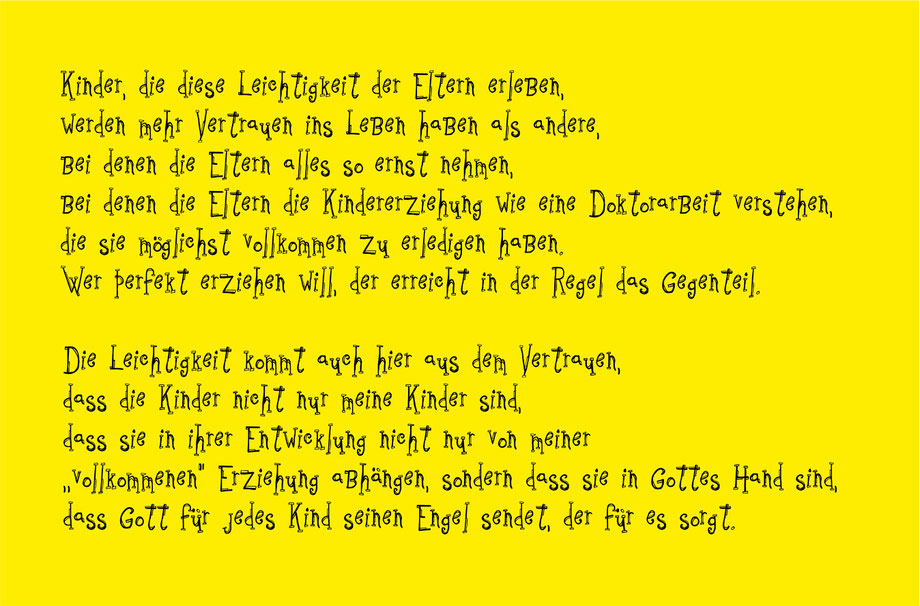 Kinder, die diese Leichtigkeit der Eltern erleben,
werden mehr Vertrauen ins Leben haben als andere,
bei denen die Eltern alles so ernst nehmen,
bei denen die Eltern die Kindererziehung wie eine Doktorarbeit verstehen,
die sie möglichst vollkommen zu erledigen haben.
Wer perfekt erziehen will, der erreicht in der Regel das Gegenteil.
Die Leichtigkeit kommt auch hier aus dem Vertrauen,
dass die Kinder nicht nur meine Kinder sind,
dass sie in ihrer Entwicklung nicht nur von meiner
„vollkommenen" Erziehung abhängen, sondern dass sie in Gottes Hand sind,
dass Gott für jedes Kind seinen Engel sendet, der für es sorgt.